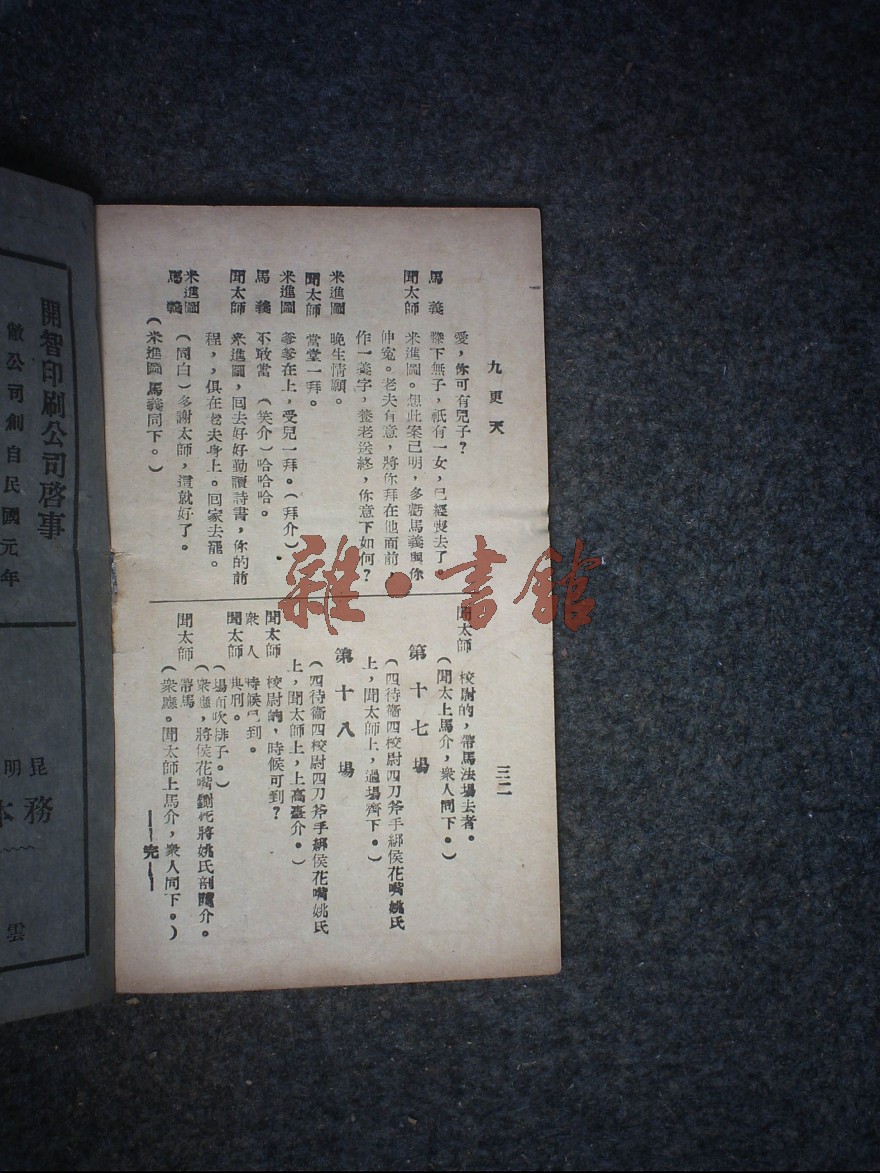 九更天
三二
愛，你可有兒子？
馬義　膝下無子，祇有一女，已經喪去了。
聞太師　米進圖。想此案已明，多虧馬義與你
伸寃。老夫有意，將你拜在他面前
作一義字，養老送終，你意下如何？
米進圖　晚生情願。
聞太師　當堂一拜。
米進圖　爹爹在上，受兒一拜。（拜介）
馬義　不敢當　（笑介）哈哈哈。
聞太師　米進圖，回去好好勤讀詩書，你的前
程，，俱在老夫身上。回家去罷。
米進圖
馬義　（同白）多謝太師，這就好了。
（米進圖馬義同下。）
聞太師　校尉的，帶馬法場去者。
（聞太上馬介，衆人同下。）
第十七場
（四待衞四校尉四刀斧手綁侯花嘴姚氏
上，聞太師上，過場齊下。）
第十八場
（四待衞四校尉四刀斧手綁侯花嘴姚氏
上，聞太師上，上高臺介。）
聞太師　校尉的，時候可到？
衆人　時候已到。
聞太師　典刑。
（場面吹排子。）
（衆應，將侯花嘴鍘死將姚氏剖腹介。
聞太師　帶馬
（衆應。聞太師上馬介，衆人同下。）
——完——
開智印刷公司啓事
敝公司創自民國元年
昆明
務本
雲
雜·書館